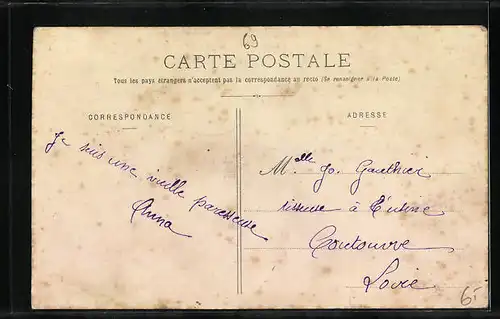 69
CARTE POSTALE
Tous les pays étrangers n'acceptent pas la correspondance au recto (Se renseigner à la Poste)
CORRESPONDANCE
Je suis une vieille paresseuse
Anna
ADRESSE
Melle Jo. Gauthier
tisseuse à l'usine
Coutouvre
Loire
6.-